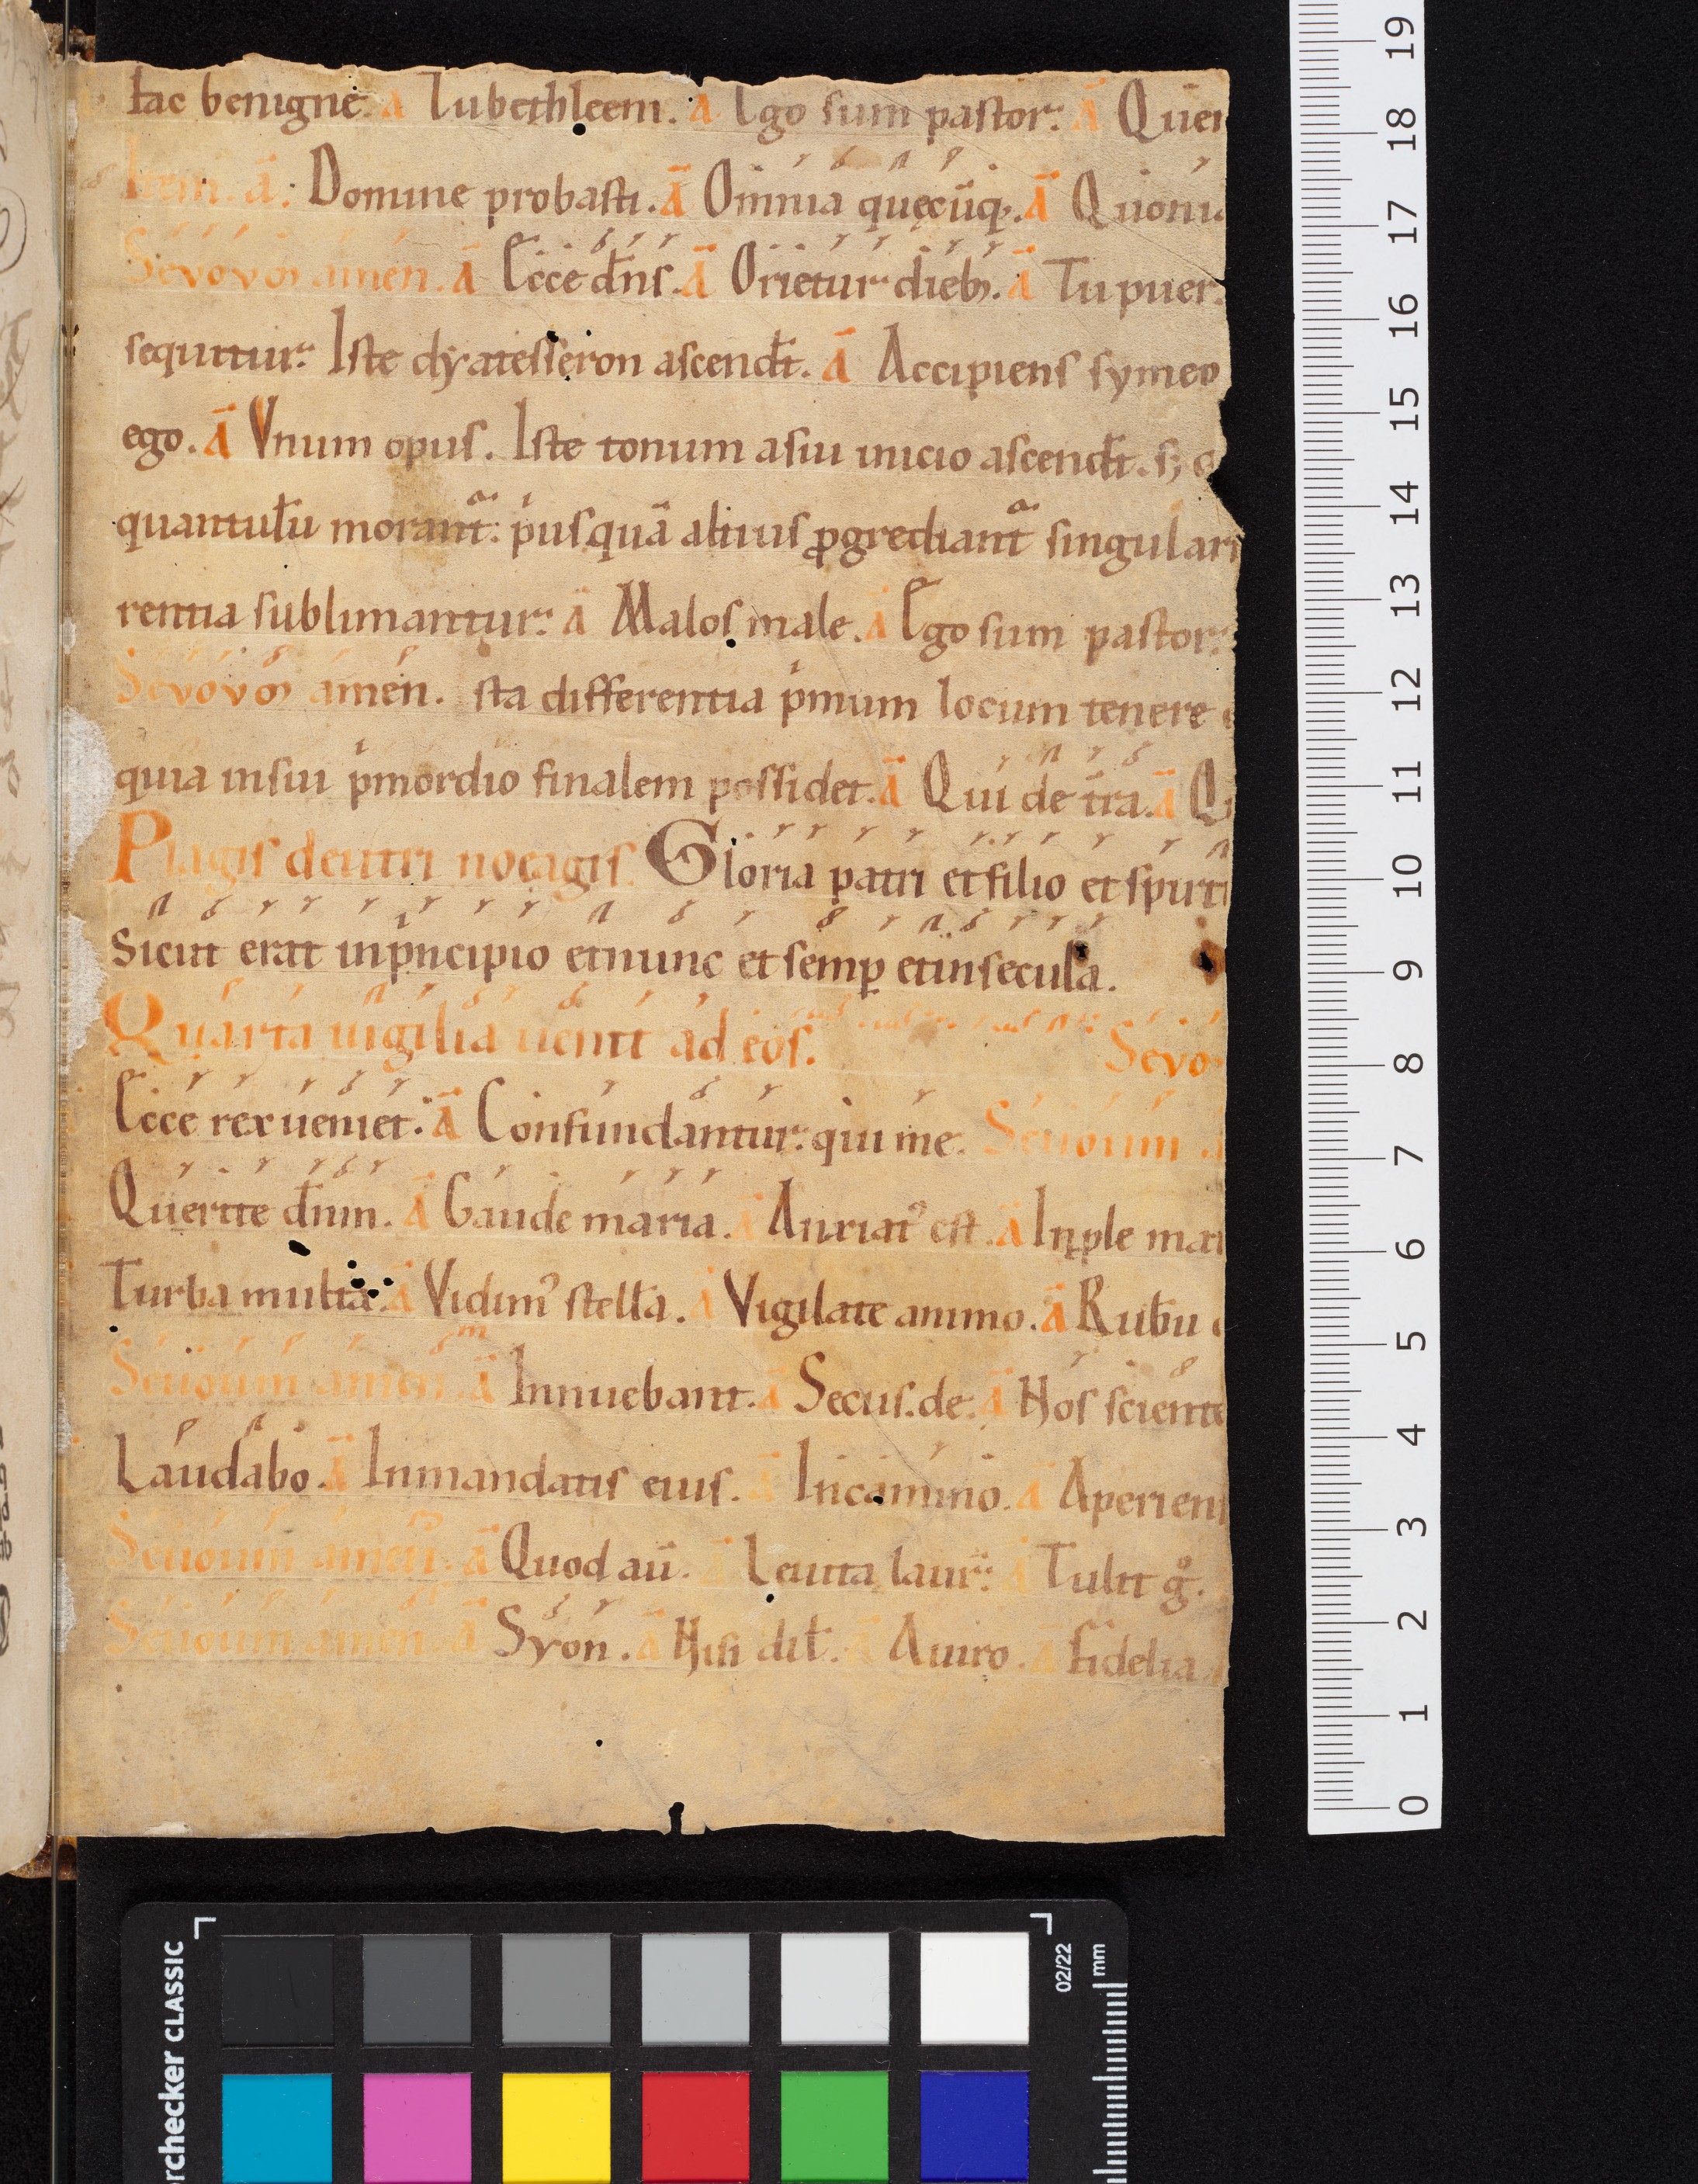 Fac benigne. a Tu bethleem. a Ego sum pastor. ā Quer
Item. ā: Domine probasti. Ā Omnia quęcūq;. Ā Quonia
Sevovos amen. Ā Ecce dn̄s. Ā Orietur dieb;. Ā Tu puer.
sequitur. Iste dyatesseron ascend̄t. Ā Accipiens symeo
ego. Ā Vnum opus. Iste tonum asui inicio ascend̄t. s;
quantulū morant̄: p̍usquā altius ꝓgrediant̄ singulari
rentia sublimantur. ā Malos male. ā Ego sum pastor.
Sevovos amen. sta differentia p̍mum locum tenere
quia insui p̍mordio finalem possidet. Ā Qui de tr̄a. Ā Q
Plagis deutri noeagis. Gloria patri et filio et spirit
Sicut erat inp̍ncipio et nunc et semꝑ et insecula.
Quarta uigilia uenit ad eos. Sevo
Ecce rex ueniet. Ā Confundantur. qui me. Seuouum
Querite dn̄m. Ā Gaude maria. Ā Auriat᾽ est. Ā Inple mat
Turba multa. Ā Vidim᾽ stellā. Ā Vigilate animo. Ā Rubū
Seuouum amen. Ā Innuebant. Ā Secus. de. Ā Hos sciente
Laudabo. Ā Inmandatis eius. Ā Incamino. Ā Aperient
Seuouum amen. Ā Quod aū. Ā Leuita laur. Ā Tulit g̊.
Seuouum amen Ā Syon. Ā Nisi dil̄. Ā A uiro. Ā fidelia
19
18
17
16
15
14
13
12
11
10
9
8
7
6
5
4
3
2
1
0
rchecker CLASSIC
02/22
mm